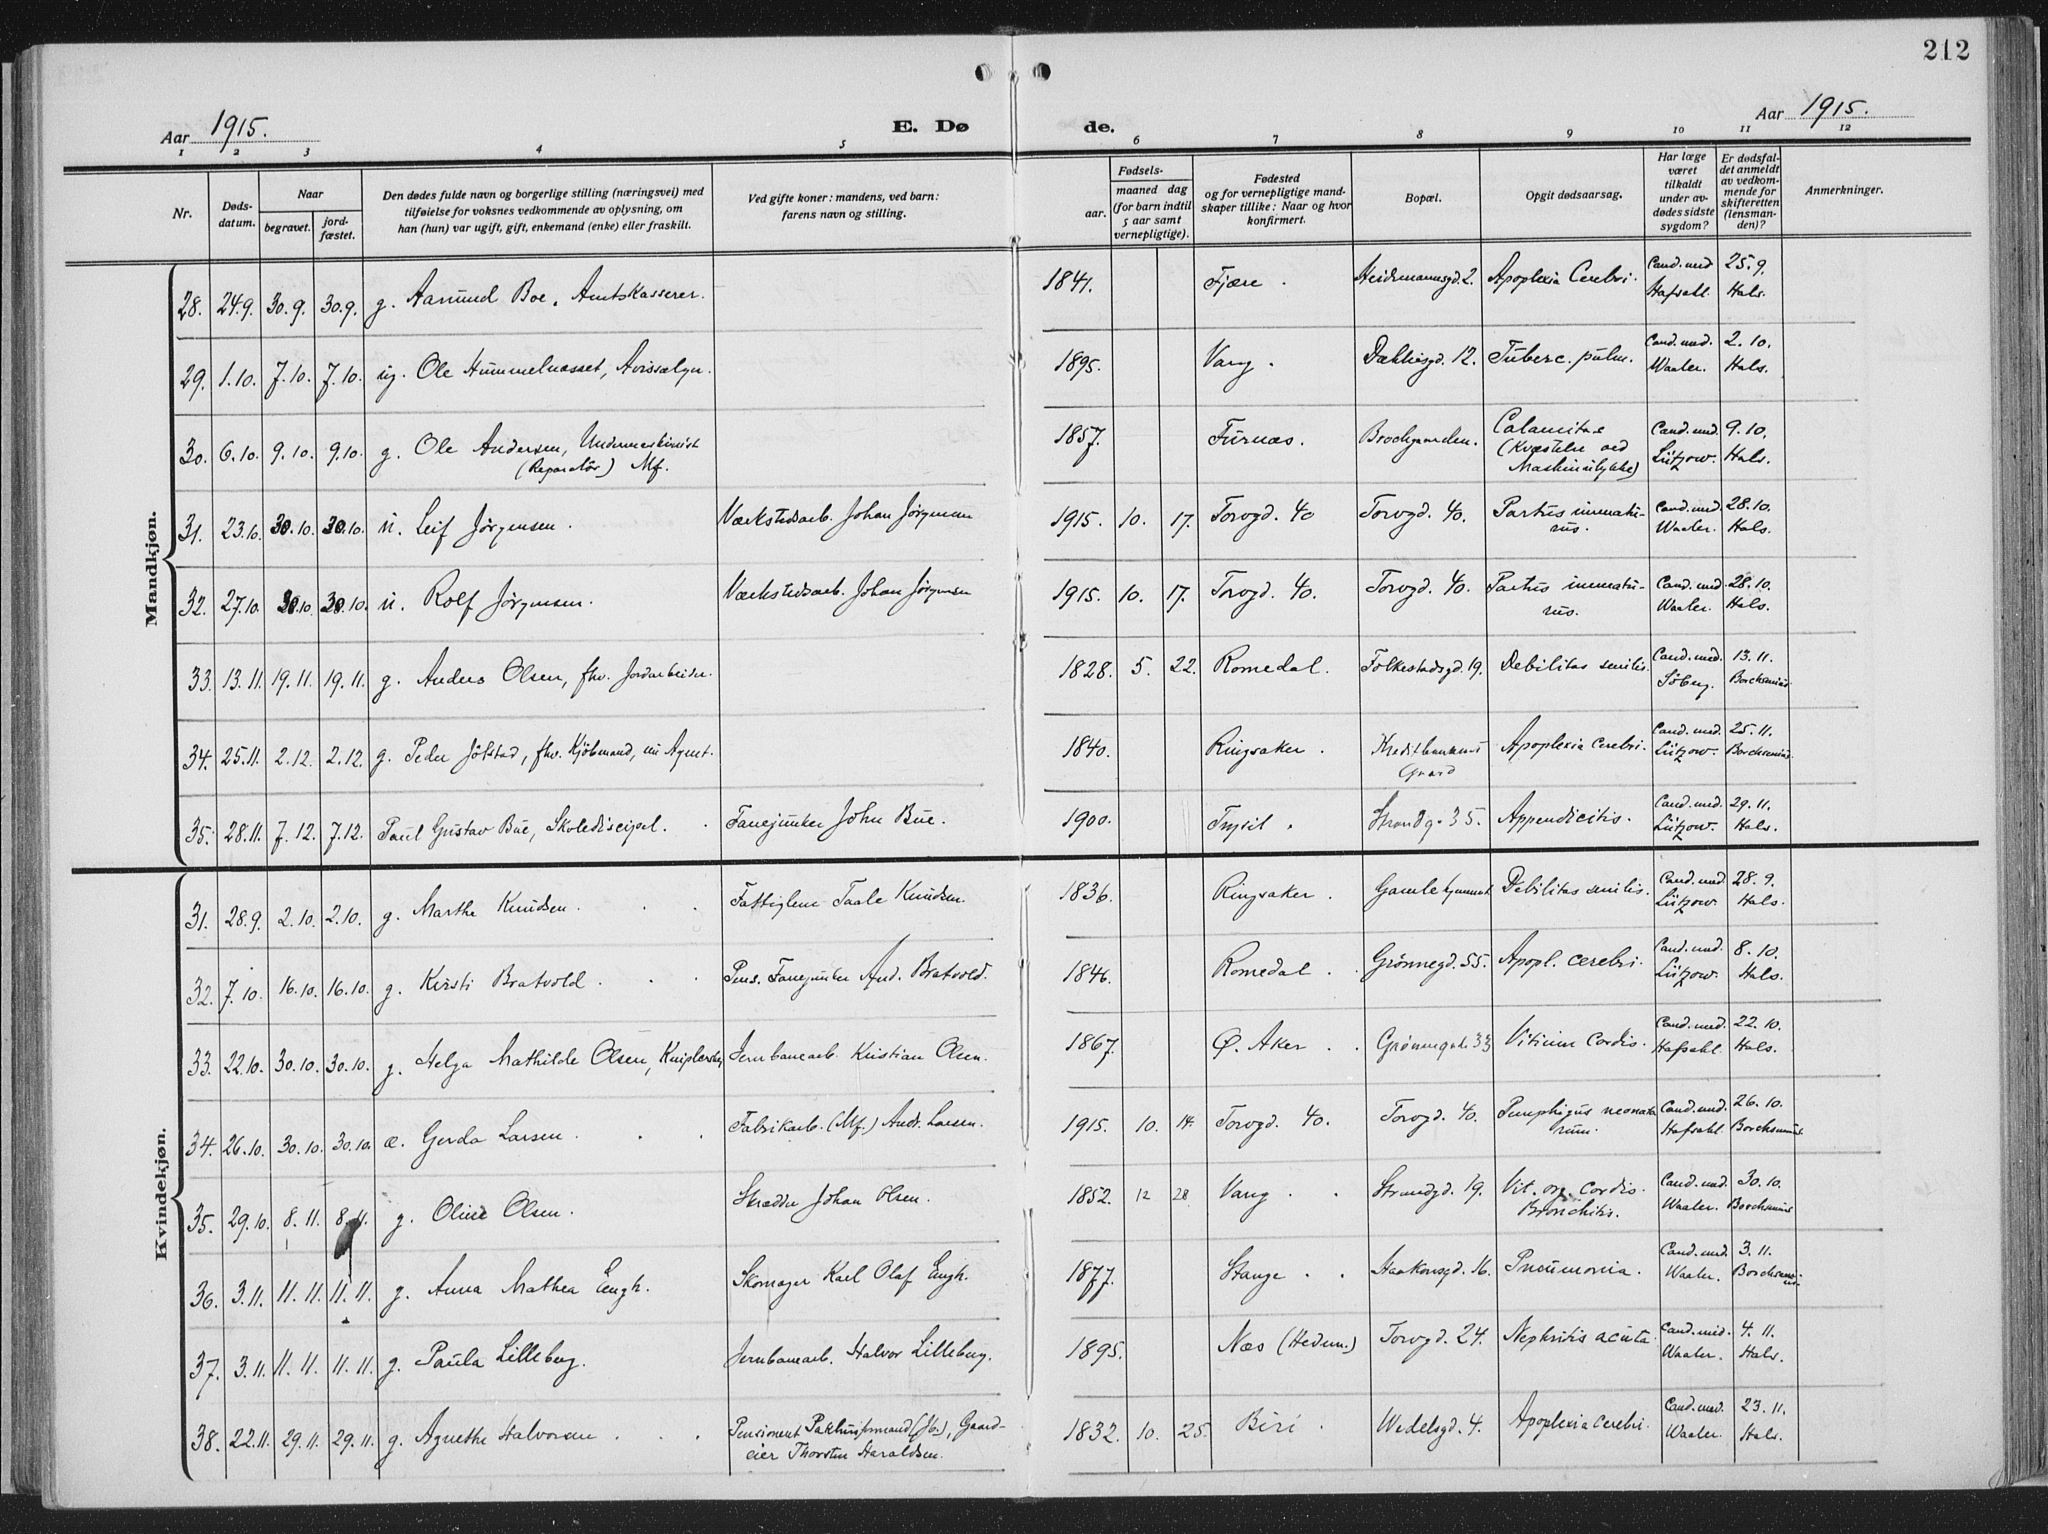 212
Aar 1915.
E. Dø de.
Aar 1915.
1 2 3 4 5 6 7 8 9 10 11 12
Nr. Døds-datum. Naar begravet. jord-fæstet. Den dødes fulde navn og borgerlige stilling (næringsvei) med tilføielse for voksnes vedkommende av oplysning, om han (hun) var ugift, gift, enkemand (enke) eller fraskilt. Ved gifte koner: mandens, ved barn: farens navn og stilling. Fødsels- aar. maaned dag (for barn indtil 5 aar samt vernepligtige). Fødested og for vernepligtige mand-skaper tillike: Naar og hvor konfirmert. Bopæl. Opgit dødsaarsag. Har læge været tilkaldt under av-dødes sidste sygdom? Er dødsfal-det anmeldt av vedkom-mende for skifteretten (lensman-den)? Anmerkninger.
Mandkjøn.
28. 24.9. 30.9. 30.9. g. Aamund Boe, Amtskasserer. 1841. Fjære. Heidemannsgd. 2. Apoplexia Cerebri. Cand. med Hafsahl. 25.9. Hals.
29. 1.10. 7.10. 7.10. ug. Ole Hummelnæsset, Avissælger. 1895. Vang. Dækkesgd. 12. Tuberc. pulm. Cand. med. Waaler. 2.10. Hals.
30. 6.10. 9.10. 9.10. g. Ole Andersen, Undermaskinist (Reparatör) Mf. 1857. Furnæs. Brochgaarden. Calamitas (Kvæstelse ved Maskinulykke) Cand. med Lützow. 9.10. Hals.
31. 23.10. 30.10. 30.10. u. Leif Jörgensen. Værkstedsarb. Johan Jörgensen 1915. 10. 17. Torvgd. 40 Torvgd. 40. Partus immatu-rus. Cand. med Waaler. 28.10. Hals.
32. 27.10. 30.10. 30.10. u. Rolf Jörgensen. Værkstedsarb. Johan Jörgensen 1915. 10. 17. Torvgd. 40. Torvgd. 40. Partus immatu-rus. Cand. med. Waaler. 28.10. Hals.
33. 13.11. 19.11. 19.11. g. Anders Olsen, fhv. Jordarbeider. 1828. 5. 22. Romedal. Folkestadsgd. 19. Debilitas senilis. Cand. med. Söberg. 13.11. Borchsenius.
34. 25.11. 2.12. 2.12. g. Peder Jölstad, fhv. Kjöbmand, nu Agent. 1840. Ringsaker. Kreditbankens Gaard Apoplexia cerebri. Cand. med. Lützow. 25.11. Borchsenius.
35. 28.11. 7.12. 7.12. Paul Gustav Bue, Skolediscipel. Fanejunker John Bue. 1900. Trysil. Strandg. 35. Appendicitis. Cand. med. Lützow. 29.11. Hals.
Kvindekjøn.
31. 28.9. 2.10. 2.10. g. Marthe Knudsen. Fattiglem Taale Knudsen. 1836. Ringsaker. Gamle Debilitas senilis. Cand. med Lützow. 28.9. Hals.
32. 7.10. 16.10. 16.10. g. Kirsti Bratvold. Pens. Fanejunker And. Bratvold. 1846. Romedal. Grönnegd. 55. Apopl. cerebri. Cand. med. Lützow. 8.10. Hals.
33. 22.10. 30.10. 30.10. g. Helga Mathilde Olsen, Kniplerske, Jernbanearb. Kristian Olsen. 1867. Ø. Aker. Grönnegade 33 Vitium Cordis. Cand. med. Hafsahl. 22.10. Hals.
34. 26.10. 30.10. 30.10. æ. Gerda Larsen. Fabrikarb. (Mf.) Andr. Larsen. 1915. 10. 14. Torvgd. 40. Torvgd. 40. Pemphigus neonato rum. Cand. med. Hafsahl. 26.10. Borchsenius.
35. 29.10. 8.11. 8.11. g. Oline Olsen. Skrædder Johan Olsen. 1852. 12 28 Vang. Strandgd. 19. Vit. org. cordis. Bronchitis. Cand. med. Waaler. 30.10. Borchsenius
36. 3.11. 11.11. 11.11. g. Anna Mathea Engh. Skomager Karl Olaf Engh. 1877. Stange. Haakonsgd. 16. Pneumonia. Cand. med. Waaler. 3.11. Borchsenius.
37. 3.11. 11.11. 11.11. g. Paula Lilleberg. Jernbanearb. Halvor Lilleberg. 1895. Næs (Hedem.) Torvgd. 24. Nephritis acuta. Cand. med. Waaler. 4.11. Hals.
38. 22.11. 29.11. 29.11. g. Agnethe Halvorsen. Pensionert Pakhusformand (Jb.), Gaard-eier Thorsten Haraldsen. 1832. 10. 25. Biri. Wedelsgd. 4. Apoplexia cerebri. Cand. med. Waaler. 23.11. Hals.